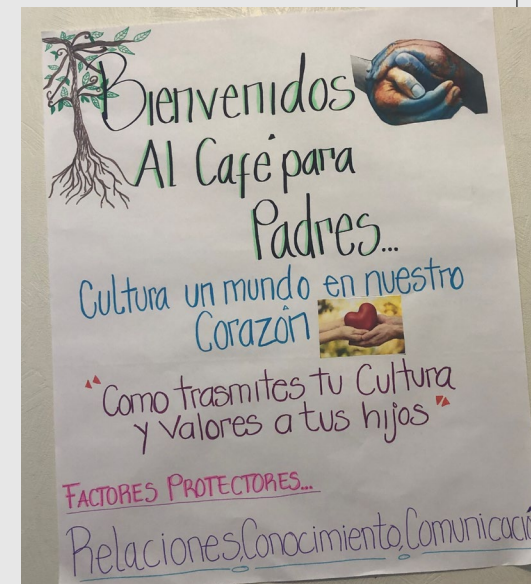 Bienvenidos
Al Café para
Padres...
Cultura un mundo en nuestro
Corazón
"Como trasmites tu Cultura
y Valores a tus hijos"
FACTORES PROTECTORES...
Relaciones, Conocimiento, Comunicació